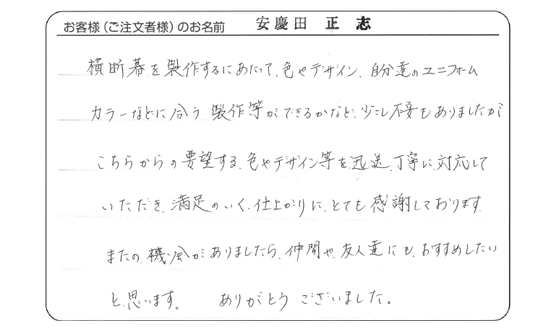 お客様(ご注文者様)のお名前 安慶田 正志
横断幕を製作するにあたって、色やデザイン、自分達のユニフォーム
カラーなどに合う製作等ができるかなど、少し不安もありましたが
こちらからの要望する、色やデザイン等を迅速、丁寧に対応して
いただき、満足のいく、仕上がりに、とても感謝しております
またの機会がありましたら、仲間や、友人達にも、おすすめしたい
と思います。 ありがとうございました。